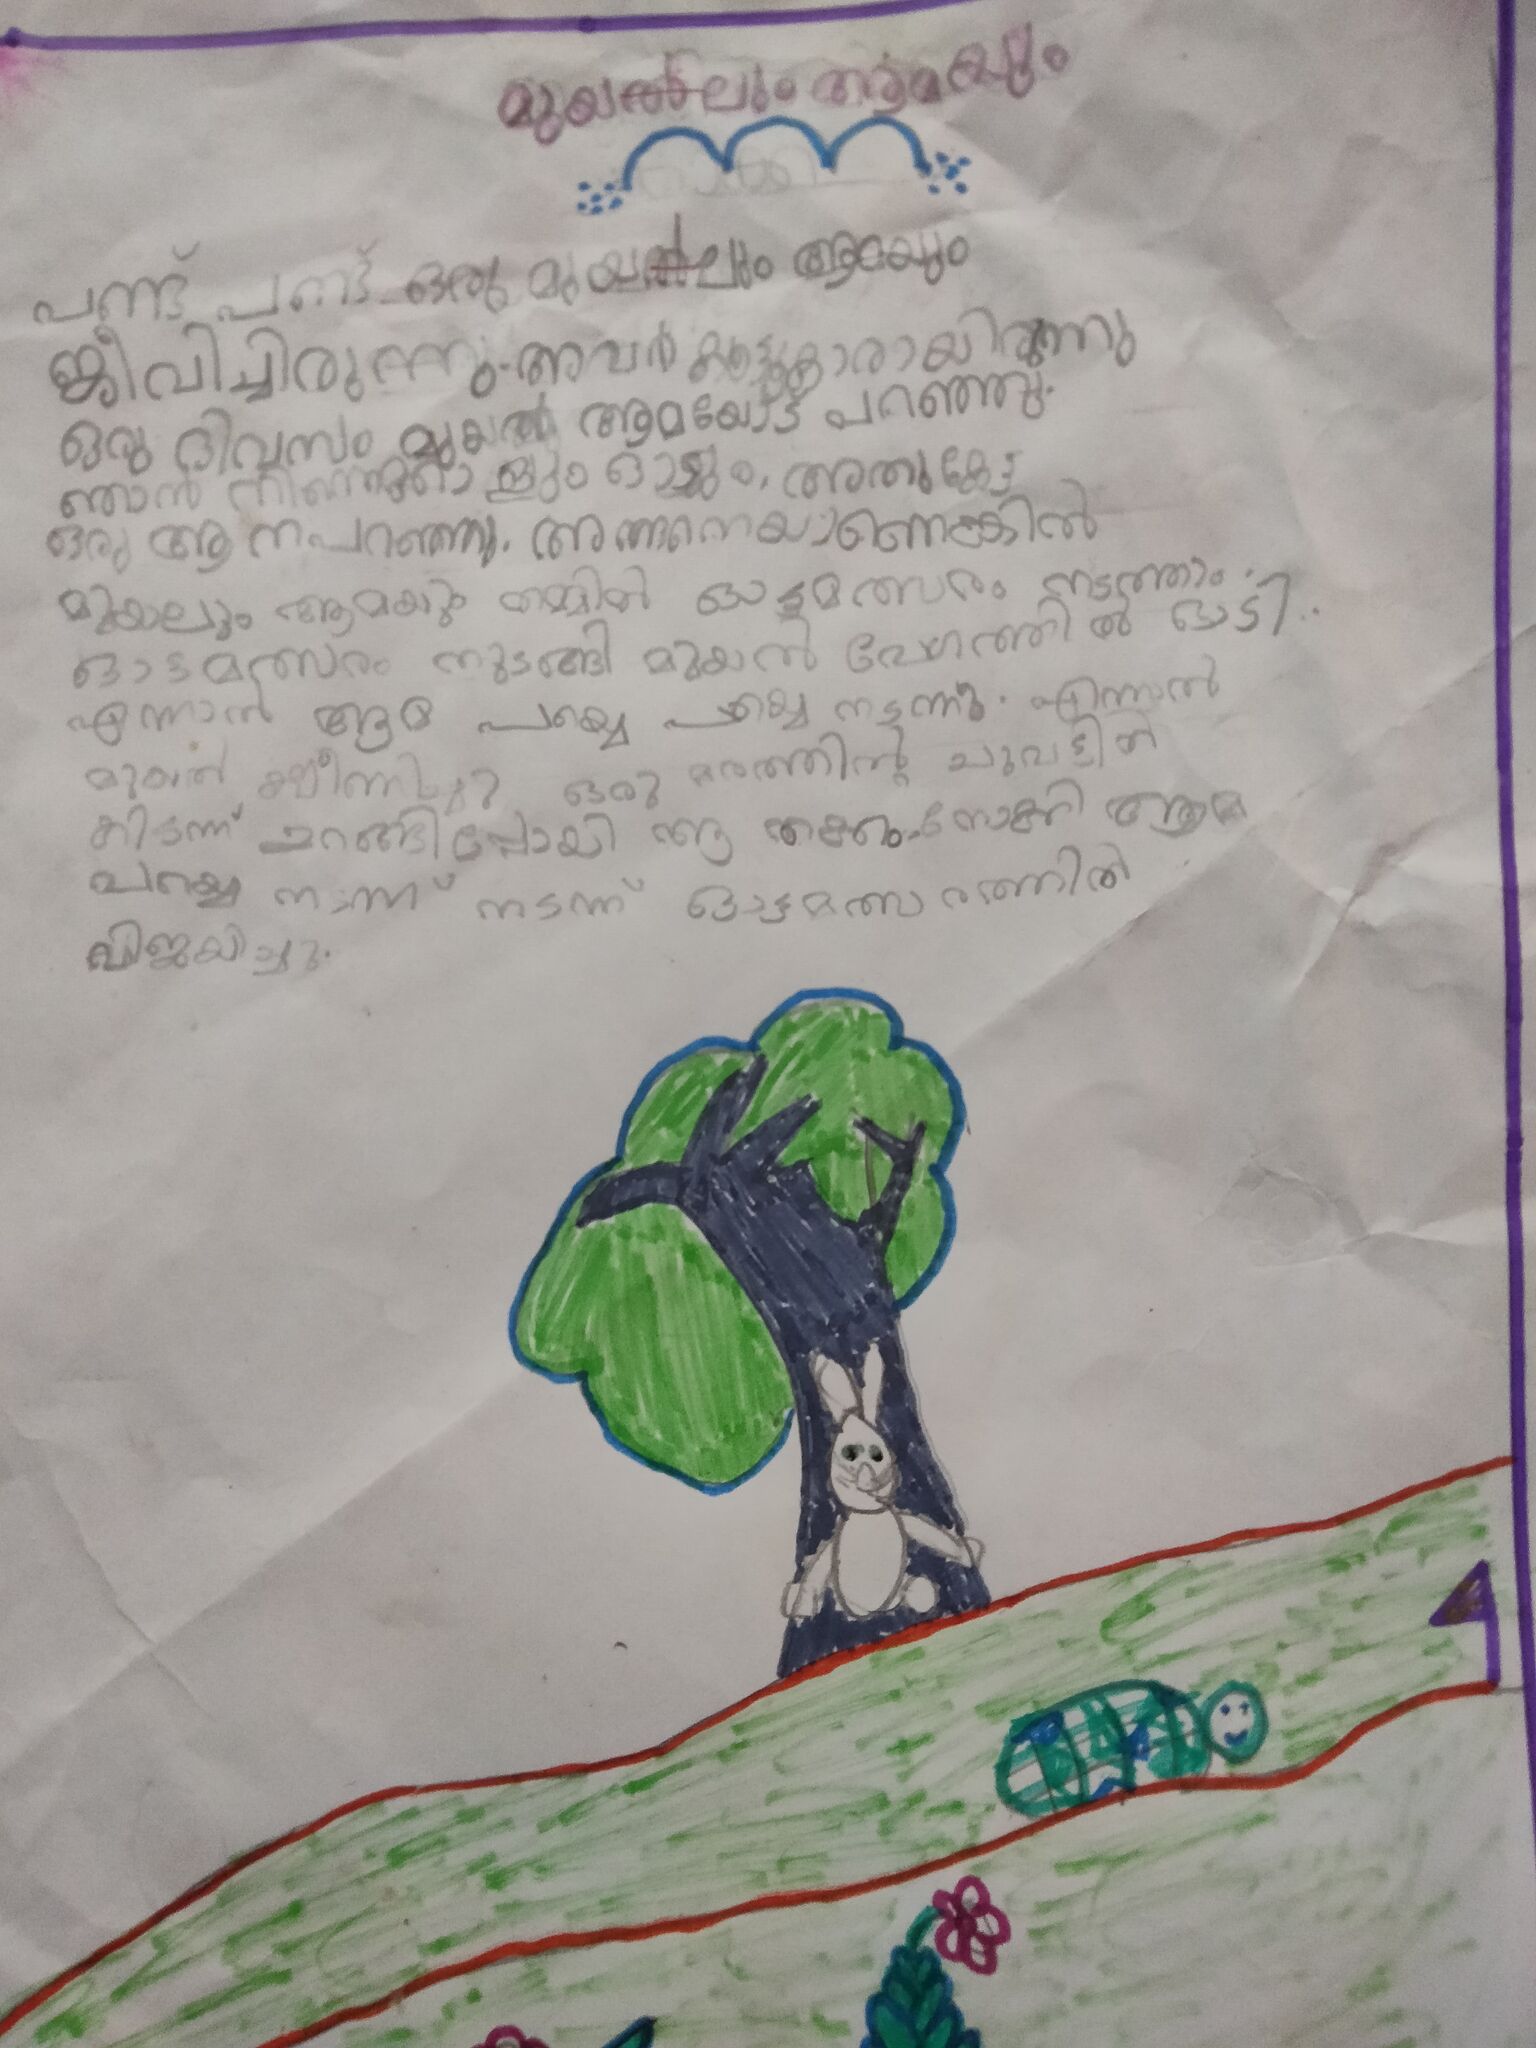 മുയലും ആമയും
പണ്ട് പണ്ട് ഒരു മുയലും ആമയും
ജീവിച്ചിരുന്നു. അവർ കൂട്ടുകാരായിരുന്നു
ഒരു ദിവസം മുയൽ ആമയോട് പറഞ്ഞു.
ഞാൻ ഓടും. അതുകേട്ട
ഒരു ആന പറഞ്ഞു. അങ്ങനെയാണെങ്കിൽ
മുയലും ആമയും തമ്മിൽ ഓട്ടമത്സരം നടത്താം.
ഓട്ടമത്സരം തുടങ്ങി മുയൽ വേഗത്തിൽ ഓടി..
എന്നാൽ ആമ പയ്യെ പയ്യെ നടന്നു. എന്നാൽ
മുയൽ ക്ഷീണിച്ചു ഒരു മരത്തിന്റെ ചുവട്ടിൽ
കിടന്ന് ഉറങ്ങിപ്പോയി ആ തക്കം നോക്കി ആമ
പയ്യെ നടന്ന് നടന്ന് ഓട്ടമത്സരത്തിൽ
വിജയിച്ചു.